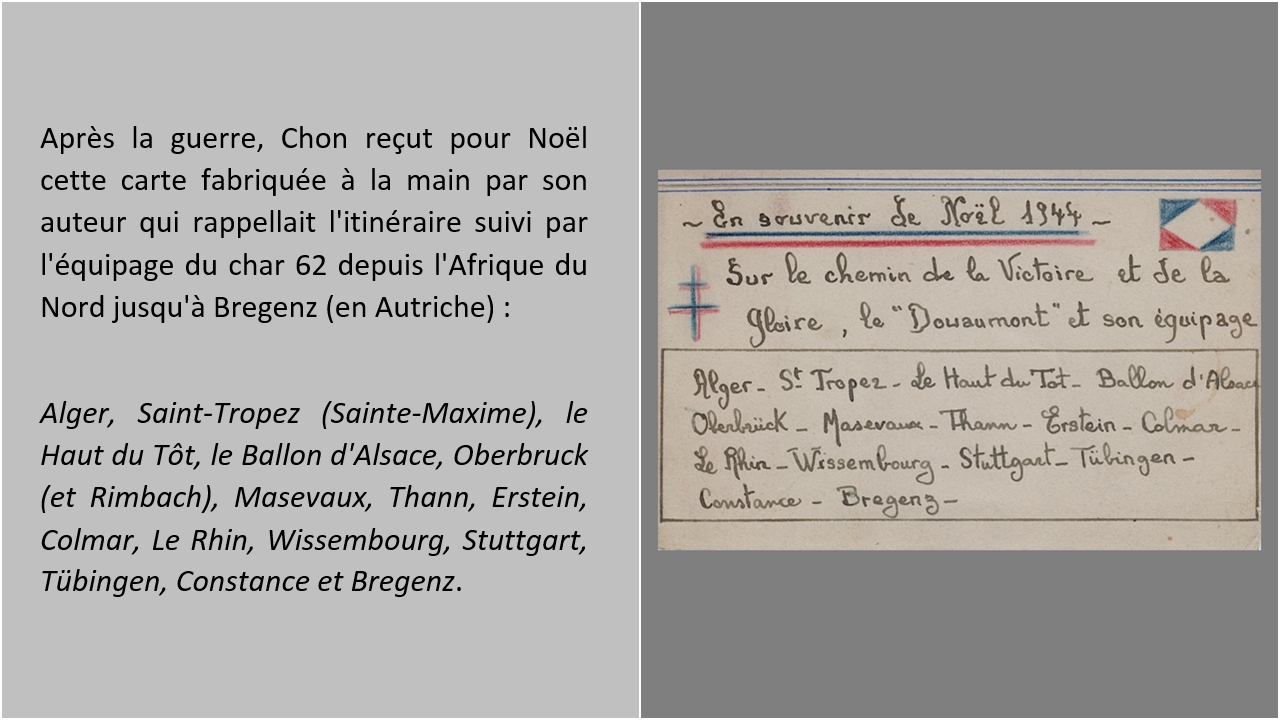 Après la guerre, Chon reçut pour Noël
cette carte fabriquée à la main par son
auteur qui rappellait l'itinéraire suivi par
l'équipage du char 62 depuis l'Afrique du
Nord jusqu'à Bregenz (en Autriche) :
Alger, Saint-Tropez (Sainte-Maxime), le
Haut du Tôt, le Ballon d'Alsace, Oberbruck
(et Rimbach), Masevaux, Thann, Erstein,
Colmar, Le Rhin, Wissembourg, Stuttgart,
Tübingen, Constance et Bregenz.
~ En souvenir de Noël 1944 ~
Sur le chemin de la Victoire et de la
Gloire, le "Douaumont" et son équipage
Alger - St Tropez - Le Haut du Tot - Ballon d'Alsace
Oberbrück - Masevaux - Thann - Erstein - Colmar -
Le Rhin - Wissembourg - Stuttgart - Tübingen -
Constance - Bregenz -